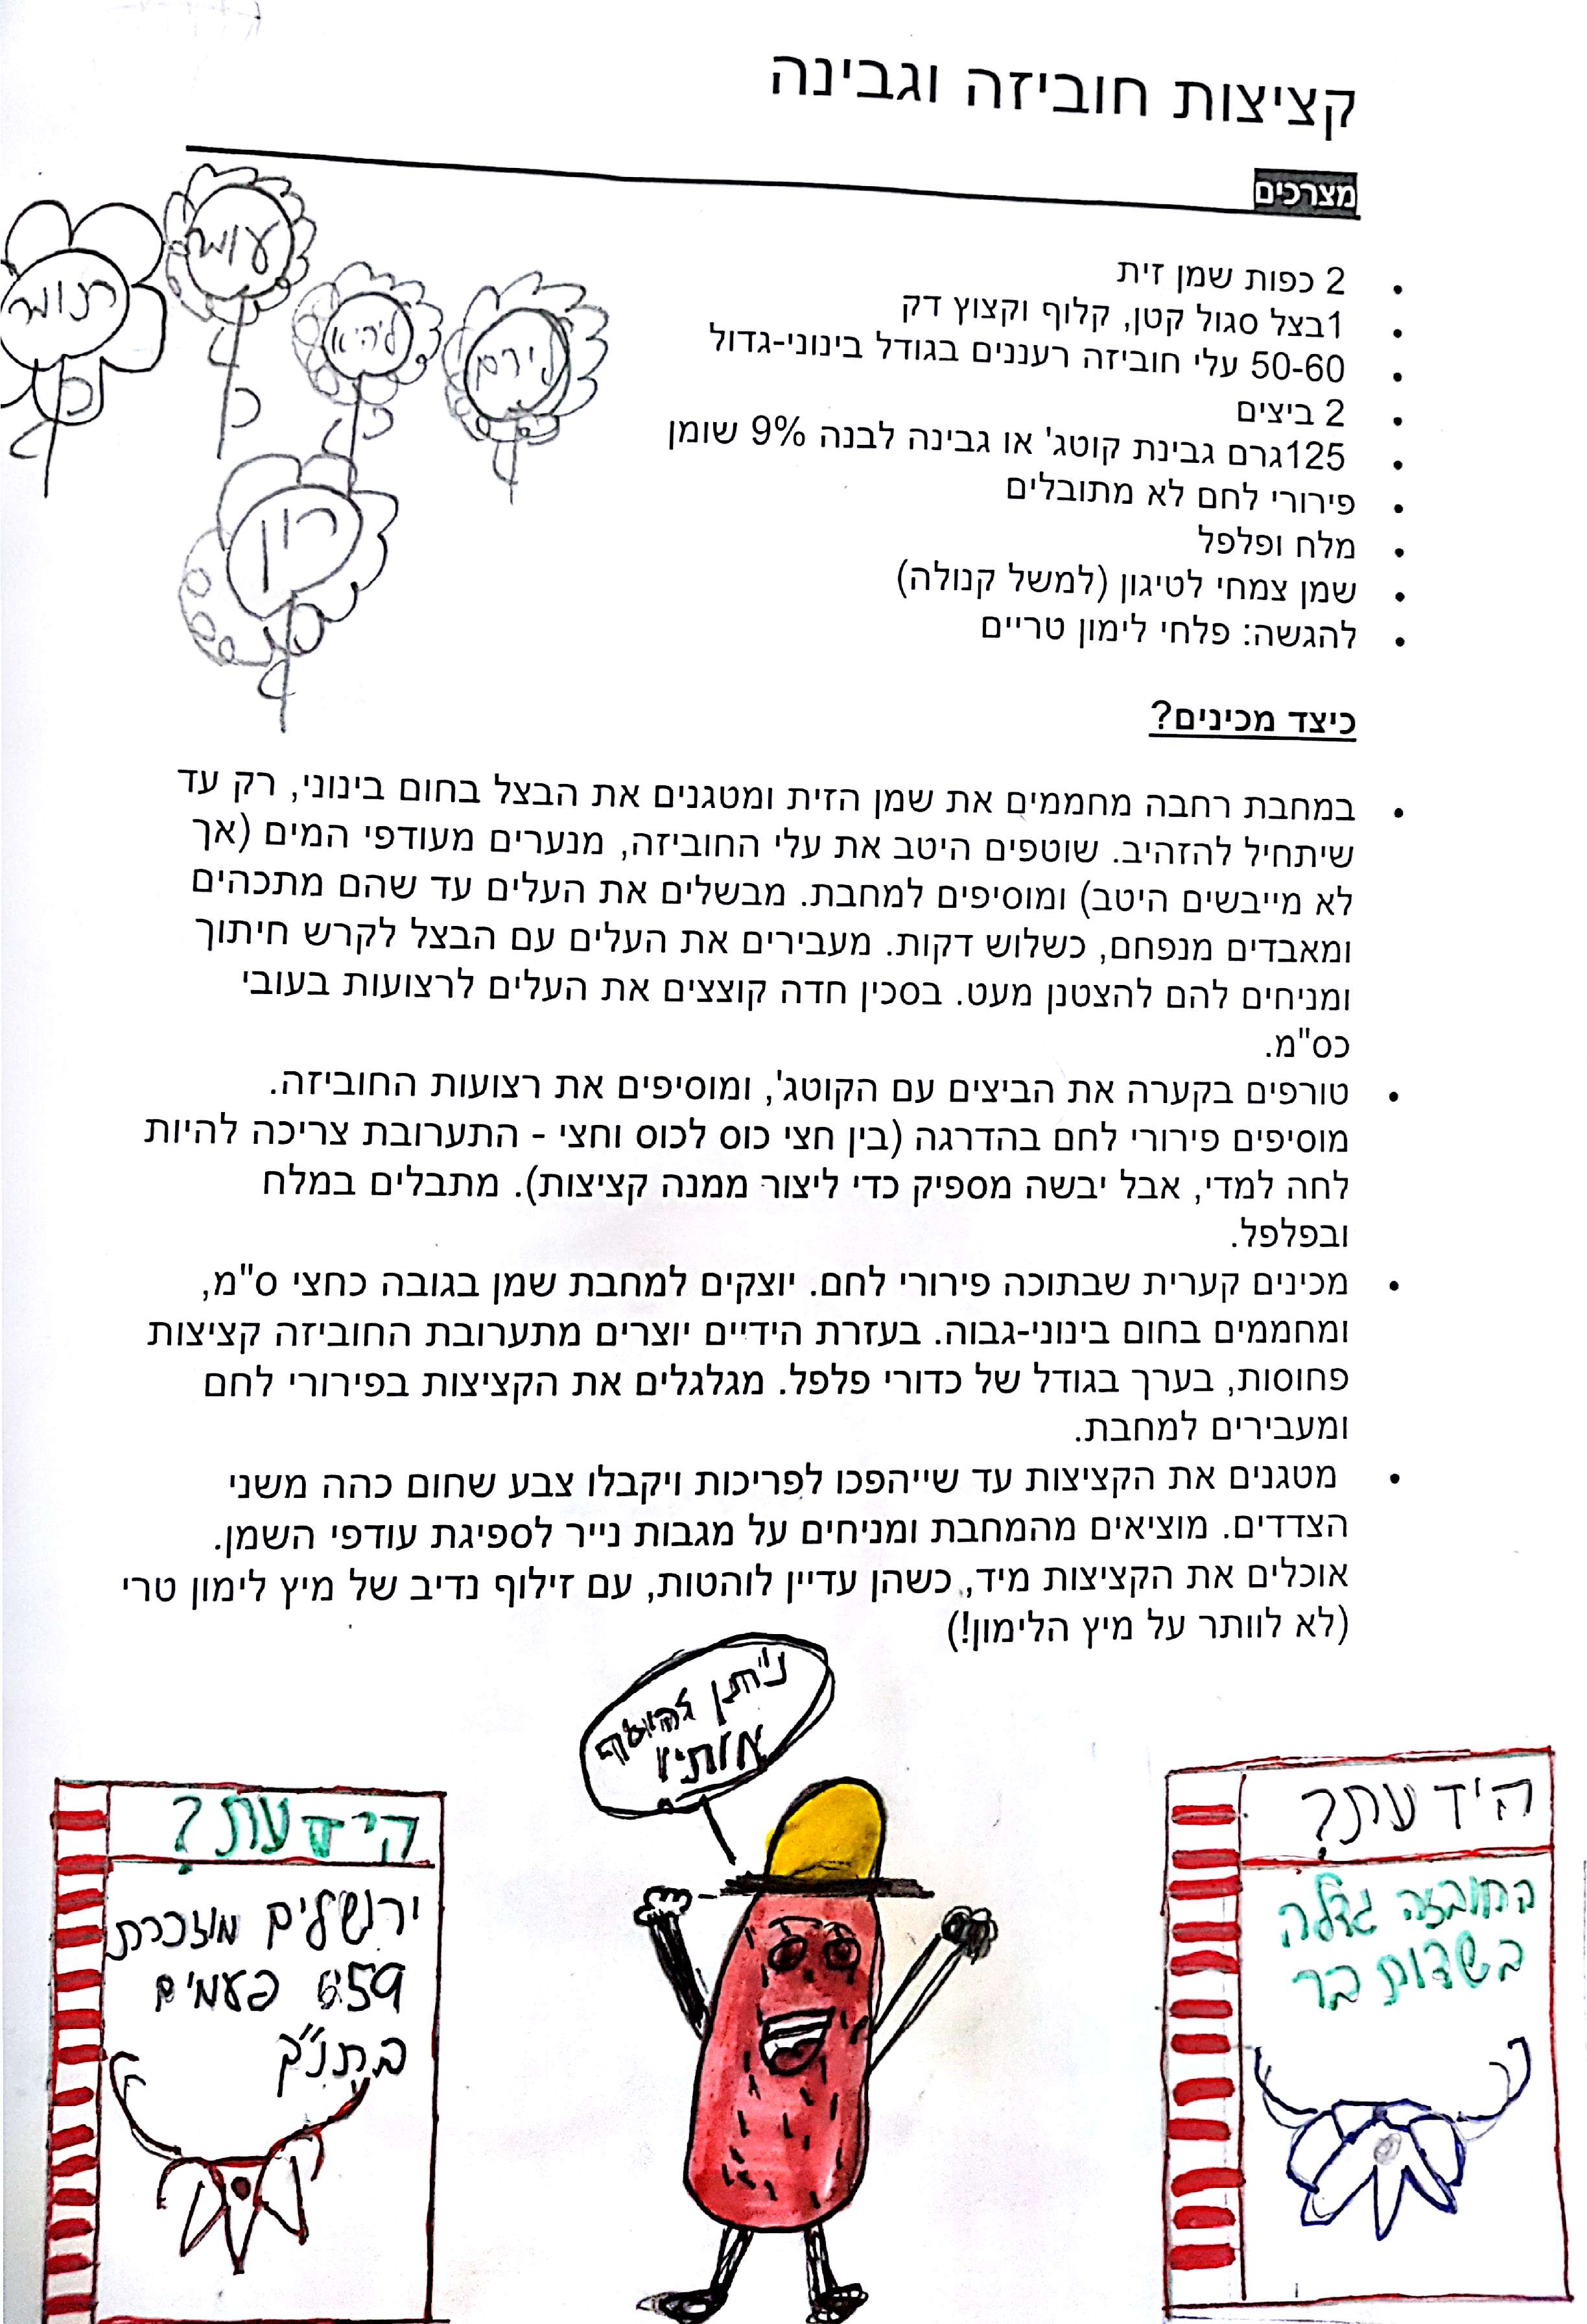 קציצות חוביזה וגבינה
מצרכים
עומר
תומר
ליהיא
לירם
רון
• 2 כפות שמן זית
• 1בצל סגול קטן, קלוף וקצוץ דק
• 50-60 עלי חוביזה רעננים בגודל בינוני-גדול
• 2 ביצים
• 125גרם גבינת קוטג' או גבינה לבנה 9% שומן
• פירורי לחם לא מתובלים
• מלח ופלפל
• שמן צמחי לטיגון (למשל קנולה)
• להגשה: פלחי לימון טריים
כיצד מכינים?
• במחבת רחבה מחממים את שמן הזית ומטגנים את הבצל בחום בינוני, רק עד
שיתחיל להזהיב. שוטפים היטב את עלי החוביזה, מנערים מעודפי המים (אך
לא מייבשים היטב) ומוסיפים למחבת. מבשלים את העלים עד שהם מתכהים
ומאבדים מנפחם, כשלוש דקות. מעבירים את העלים עם הבצל לקרש חיתוך
ומניחים להם להצטנן מעט. בסכין חדה קוצצים את העלים לרצועות בעובי
כס"מ.
• טורפים בקערה את הביצים עם הקוטג', ומוסיפים את רצועות החוביזה.
מוסיפים פירורי לחם בהדרגה (בין חצי כוס לכוס וחצי - התערובת צריכה להיות
לחה למדי, אבל יבשה מספיק כדי ליצור ממנה קציצות). מתבלים במלח
ובפלפל.
• מכינים קערית שבתוכה פירורי לחם. יוצקים למחבת שמן בגובה כחצי ס"מ,
ומחממים בחום בינוני-גבוה. בעזרת הידיים יוצרים מתערובת החוביזה קציצות
פחוסות, בערך בגודל של כדורי פלפל. מגלגלים את הקציצות בפירורי לחם
ומעבירים למחבת.
• מטגנים את הקציצות עד שייהפכו לפריכות ויקבלו צבע שחום כהה משני
הצדדים. מוציאים מהמחבת ומניחים על מגבות נייר לספיגת עודפי השמן.
אוכלים את הקציצות מיד, כשהן עדיין לוהטות, עם זילוף נדיב של מיץ לימון טרי
(לא לוותר על מיץ הלימון!)
ניתן להוסיף
אותי!
הידעת?
החובזה גדלה
בשדות בר
הידעת?
ירושלים מוזכרת
659 פעמים
בתנ"ך